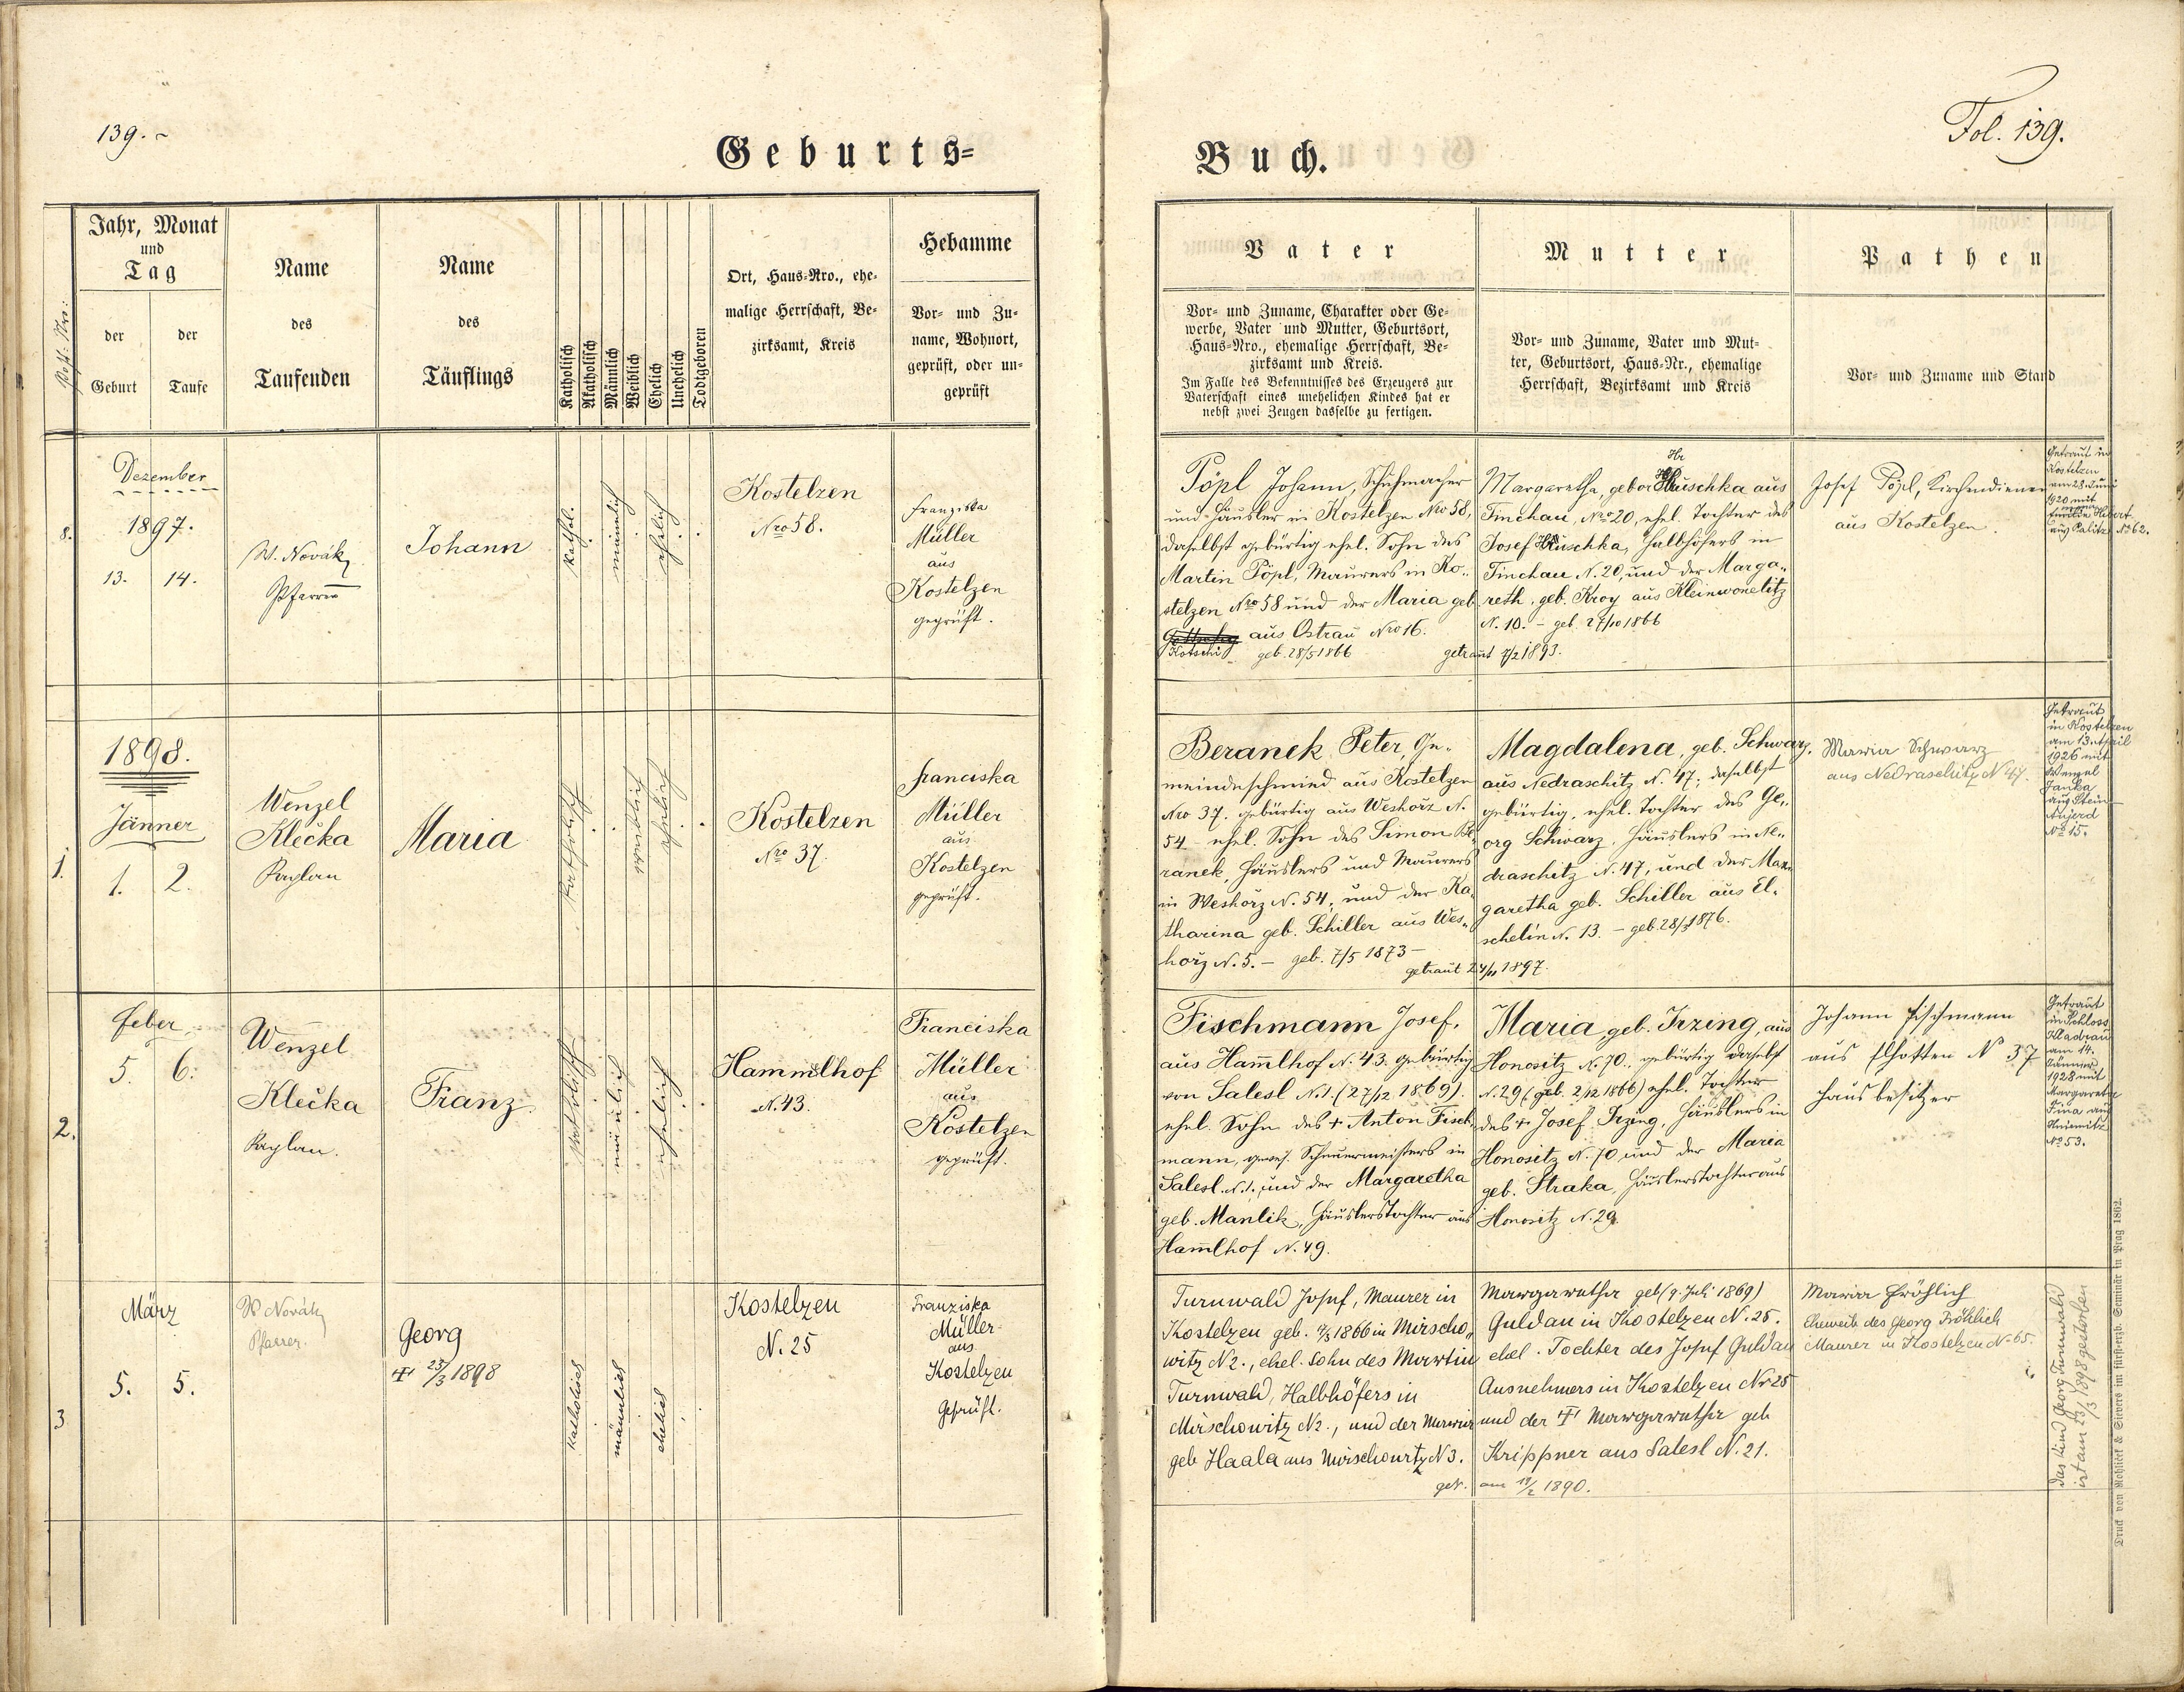 139.
Geburts=
Post: Nro:
Jahr, Monat
und
Tag
der
Geburt
der
Taufe
Name
des
Taufenden
Name
des
Täuflings
Katholisch
Akatholisch
Männlich
Weiblich
Ehelich
Unehelich
Todtgeboren
Ort, Haus=Nro., ehe=
malige Herrschaft, Be=
zirksamt, Kreis
Hebamme
Vor= und Zu=
name, Wohnort,
geprüft, oder un=
geprüft
8.
Dezember
1897.
13. 14.
W. Novák
Pfarrer
Johann
kathol.
männlich
ehelich
Kostelzen
Nro 58.
Franziska
Müller
aus
Kostelzen
geprüft.
1.
1898.
Jänner
1. 2.
Wenzel
Klečka
Kaplan
Maria
katholisch
weiblich
ehelich
Kostelzen
Nro 37.
Franciska
Müller
aus
Kostelzen
geprüft.
2.
Feber
5. 6.
Wenzel
Klečka
Kaplan.
Franz
katholisch
männlich
ehelich
Hammlhof
N. 43.
Franciska
Müller
aus
Kostelzen
geprüft.
3
März
5. 5.
W Novák
Pfarrer.
Georg
† 23/3 1898
katholisch
männlich
ehelich
Kostelzen
N. 25
Franziska
Müller
aus
Kostelzen
Geprüft.
Buch.
Fol. 139.
Vater
Vor= und Zuname, Charakter oder Ge=
werbe, Vater und Mutter, Geburtsort,
Haus=Nro., ehemalige Herrschaft, Be=
zirksamt und Kreis.
Im Falle des Bekenntnisses des Erzeugers zur
Vaterschaft eines unehelichen Kindes hat er
nebst zwei Zeugen dasselbe zu fertigen.
Mutter
Vor= und Zuname, Vater und Mut=
ter, Geburtsort, Haus=Nr., ehemalige
Herrschaft, Bezirksamt und Kreis
Pathen
Vor= und Zuname und Stand
Pöpl Johann, Schuhmacher
und Häusler in Kostelzen Nro 58,
daselbst gebürtig ehel. Sohn des
Martin Pöpl, Maurers in Ko„
stelzen Nro 58 und der Maria geb.
aus Ostrau Nro 16.
geb. 28/5 1866
Hr
Margaretha, gebor Hruschka aus
Tinchau, Nro 20, ehel. Tochter des
Josef Hruschka, Halbhöfers in
Tinchau N. 20, und der Marga„
reth, geb. Kroy aus Kleinwonetitz
N. 10. – geb. 27/10 1866
getraut 7/2 1893.
Josef Pöpl, Kirchendiener
aus Kostelzen.
Getraut in
Kostelzen
am 28. Juni
1920 mit
Hebert
aus Nro 62.
Beranek Peter, Ge„
meindeschmied aus Kostelzen
Nro 37. gebürtig aus Weshorz N.
54 – ehel. Sohn des Simon Be„
ranek, Häuslers und Maurers
in Weshorz N. 54, und der Ka„
tharina geb. Schiller aus Wes„
horz N. 5. – geb. 7/5 1873 –
Magdalena, geb. Schwarz,
aus Nedraschitz N. 47; daselbst
gebürtig, ehel. Tochter des Ge„
org Schwarz, Häuslers in Ne„
draschitz N. 47, und der Mar„
garetha geb. Schiller aus El„
schelin N. 13. – geb. 28/3 1876.
getraut 24/11 1897.
Maria Schwarz
aus Nedraschitz N 47.
Getraut
in Kostelzen
am 13. April
1926 mit
Wenzel
Janka
aus Stein
Aujezd
Nro 15.
Fischmann Josef,
aus Hammlhof N. 43. gebürtig
von Salesl N. 1. (27/12 1869).
ehel. Sohn des † Anton Fisch„
mann, gewes. Scheuermeisters in
Salesl. N. 1. und der Margaretha
geb. Manlik, Häuslerstochter aus
Hammlhof N. 49.
Maria geb. Irzing, aus
Honositz N. 70., gebürtig daselbst
N. 29 (geb. 2/12 1866) ehel. Tochter
des † Josef Irzing, Häuslers in
Honositz N. 70 und der Maria
geb. Straka, Häuslerstochter aus
Honositz N. 29.
Johann Fischmann
aus Elhotten N 37
Hausbesitzer
Getraut
in Schloss
Kladrau
am 14.
Jänner
1928 mit
Margareta
Fina aus
Kniemitz
Nro 53.
Turnwald Josef, Maurer in
Kostelzen geb. 1866 in Mirscho„
witz N2., ehel. Sohn des Martin
Turnwald, Halbhöfers in
Mirschowitz N2., und der Maria
geb Haala aus Mirschowitz N 3.
Margaretha geb (9. Juli 1869)
Guldan in Kostelzen N. 25.
ehel. Tochter des Josef Guldan
Ausnehmers in Kostelzen Nr 25
und der † Margaretha geb
Krippner aus Salesl N. 21.
getr. am 18/2 1890.
Maria Fröhlich
Eheweib des Georg Fröhlich
Maurer in Kostelzen N. 65.
das Kind Georg Turnwald
ist am 23/3 1898 gestorben
Druck von Rohliček & Sievers im fürsterzb. Seminär in Prag 1862.